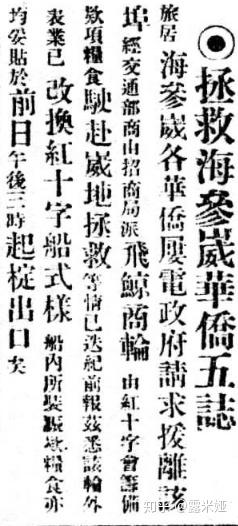 ◉拯救海參崴華僑五誌
旅居海參崴各華僑屢電政府請求援離該
埠經交通部商由招商局派飛鯨商輪由紅十字會籌備
欵項糧食駛赴崴地拯救等情已迭紀前報茲悉該輪外
表業已改換紅十字船式樣船內所裝賑欵糧食亦
均妥貼於前日午後三時起椗出口矣
知乎 @露米娅